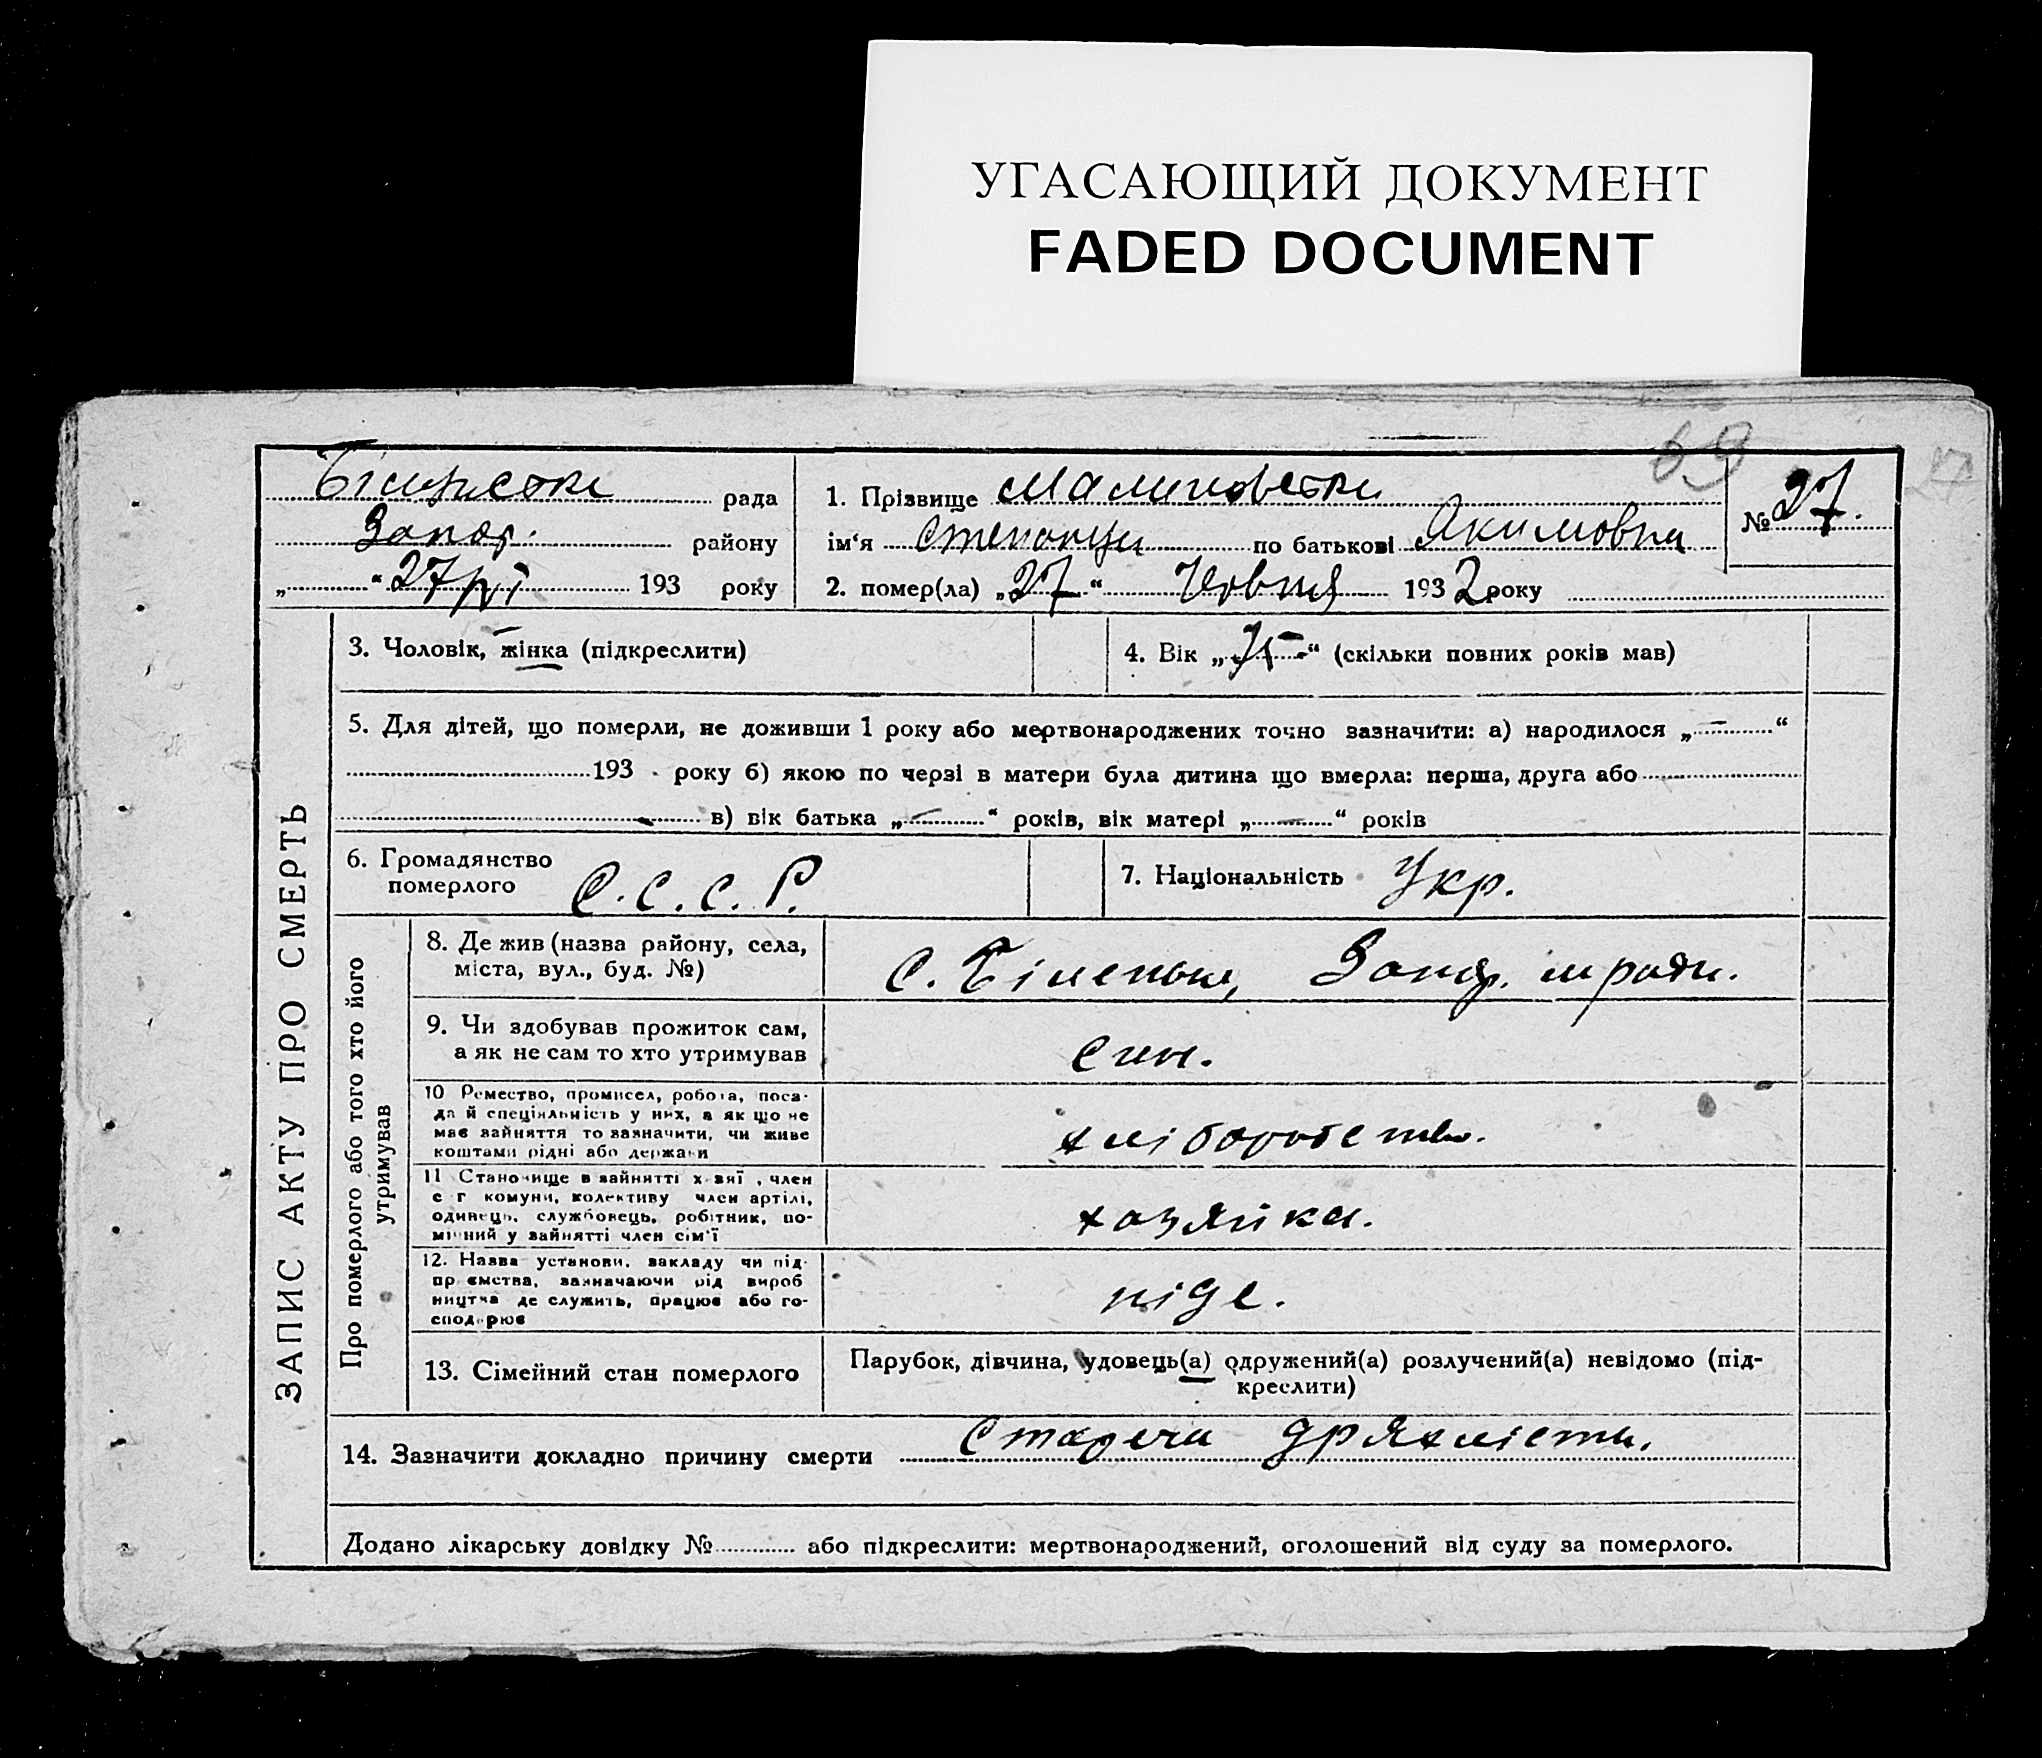 УГАСАЮЩИЙ ДОКУМЕНТ
FADED DOCUMENT
69
27
рада
Запор. району
„ “ 27/VI 193 року
1. Прізвище Малиновська
ім‘я по батькові Якимовна
2. помер(ла) „27“ Червня 1932 року
№ 27.
ЗАПИС АКТУ ПРО СМЕРТЬ
3. Чоловік, жінка (підкреслити)
4. Вік „75“ (скільки повних років мав)
5. Для дітей, що померли, не доживши 1 року або мертвонароджених точно зазначити: а) народилося „—“
193 . року б) якою по черзі в матери була дитина що вмерла: перша, друга або
в) вік батька „—“ років, вік матері „—“ років
6. Громадянство
померлого С.С.С.Р.
7. Національність Укр.
Про померлого або того хто його
утримував
8. Де жив (назва району, села,
міста, вул., буд. №)
с. Біленьке, Запор. м ради.
9. Чи здобував прожиток сам,
а як не сам то хто утримував
Син.
10 Ремество, промисел, робота, поса-
да й спеціяльність у них, а як що не
має зайняття то зазначити, чи живе
коштами рідні або держави
хліборобство.
11 Становище в зайнятті хазяї , член
с г комуни, колективу член артілі,
одинець, службовець, робітник, по-
мічний у зайнятті член сім'ї
хазяйка.
12. Назва установи, закладу чи під-
приємства, зазначаючи рід вироб
ництва де служить, працює або го-
сподарює
ніде.
13. Сімейний стан померлого
Парубок, дівчина, удовець(а) одружений(а) розлучений(а) невідомо (під-
креслити)
14. Зазначити докладно причину смерти Стареча дряхлість.
Додано лікарську довідку № або підкреслити: мертвонароджений, оголошений від суду за померлого.